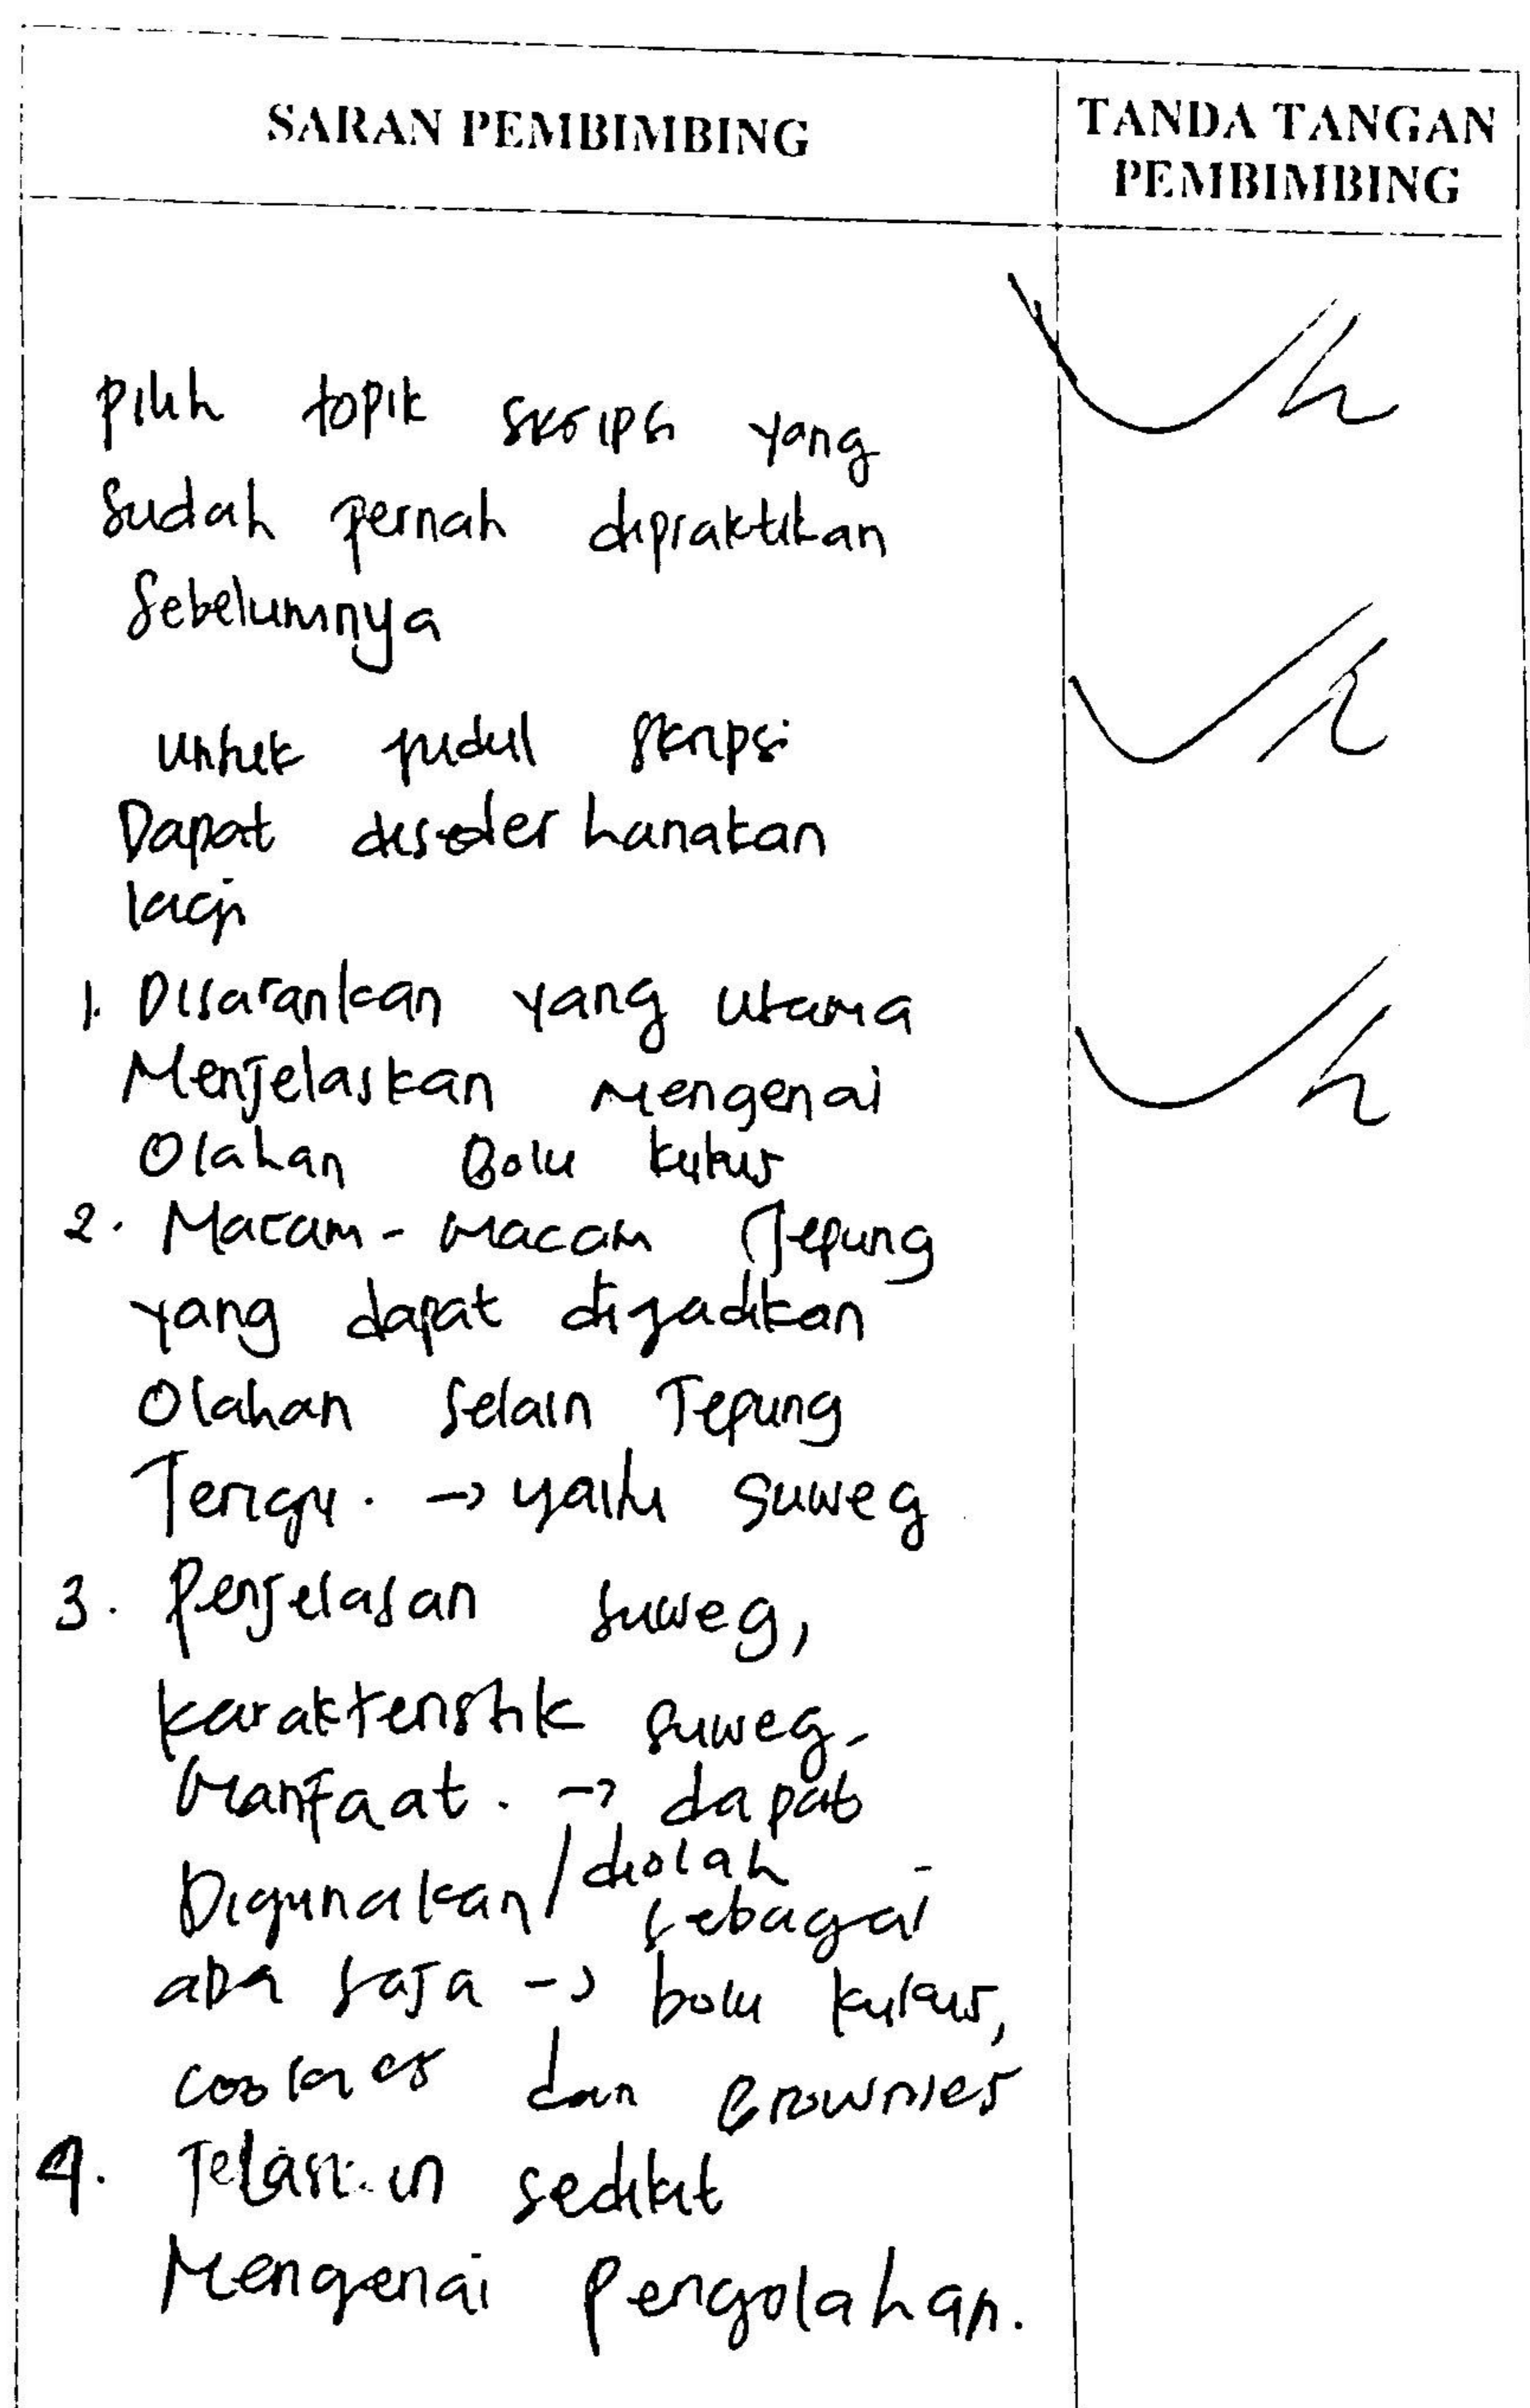 SARAN PEMBIMBING
TANDA TANGAN
PEMBIMBING
Pilih topik skripsi yang
Sudah pernah dipraktikan
Sebelumnya
Untuk judul skripsi
Dapat disederhanakan
lagi
1. Disarankan yang utama
Menjelaskan Mengenai
Olahan Bolu kukus
2. Macam - Macam Tepung
yang dapat dijadikan
Olahan Selain Tepung
Terigu. -> yaitu Suweg
3. Penjelasan Suweg,
karakteristik Suweg.
Manfaat. -> dapat
Digunakan / diolah
sebagai
apa saja -> bolu kukus,
cookies dan Brownies
4. Jelaskan sedikit
Mengenai Pengolahan.